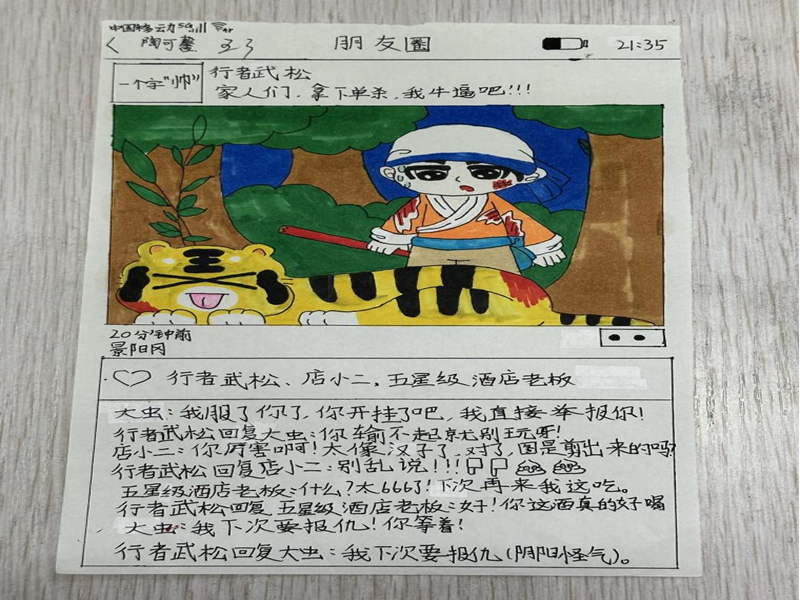 中国移动5G
< 陶可馨 朋友圈 21:35
一个字"帅"
行者武松
家人们，拿下单杀，我牛逼吧!!!
王
20分钟前
景阳冈
♡ 行者武松、店小二，五星级酒店老板
大虫：我服了你了，你开挂了吧，我直接举报你！
行者武松回复大虫：你输不起就别玩呀！
店小二：你厉害啊！太像汉子了，对了，图是剪出来的吗？
行者武松回复店小二：别乱说!!!
五星级酒店老板：什么？太666了！下次再来我这吃。
行者武松回复五星级酒店老板：好！你这酒真的好喝
大虫：我下次要报仇！你等着！
行者武松回复大虫：我下次要报仇(阴阳怪气)。